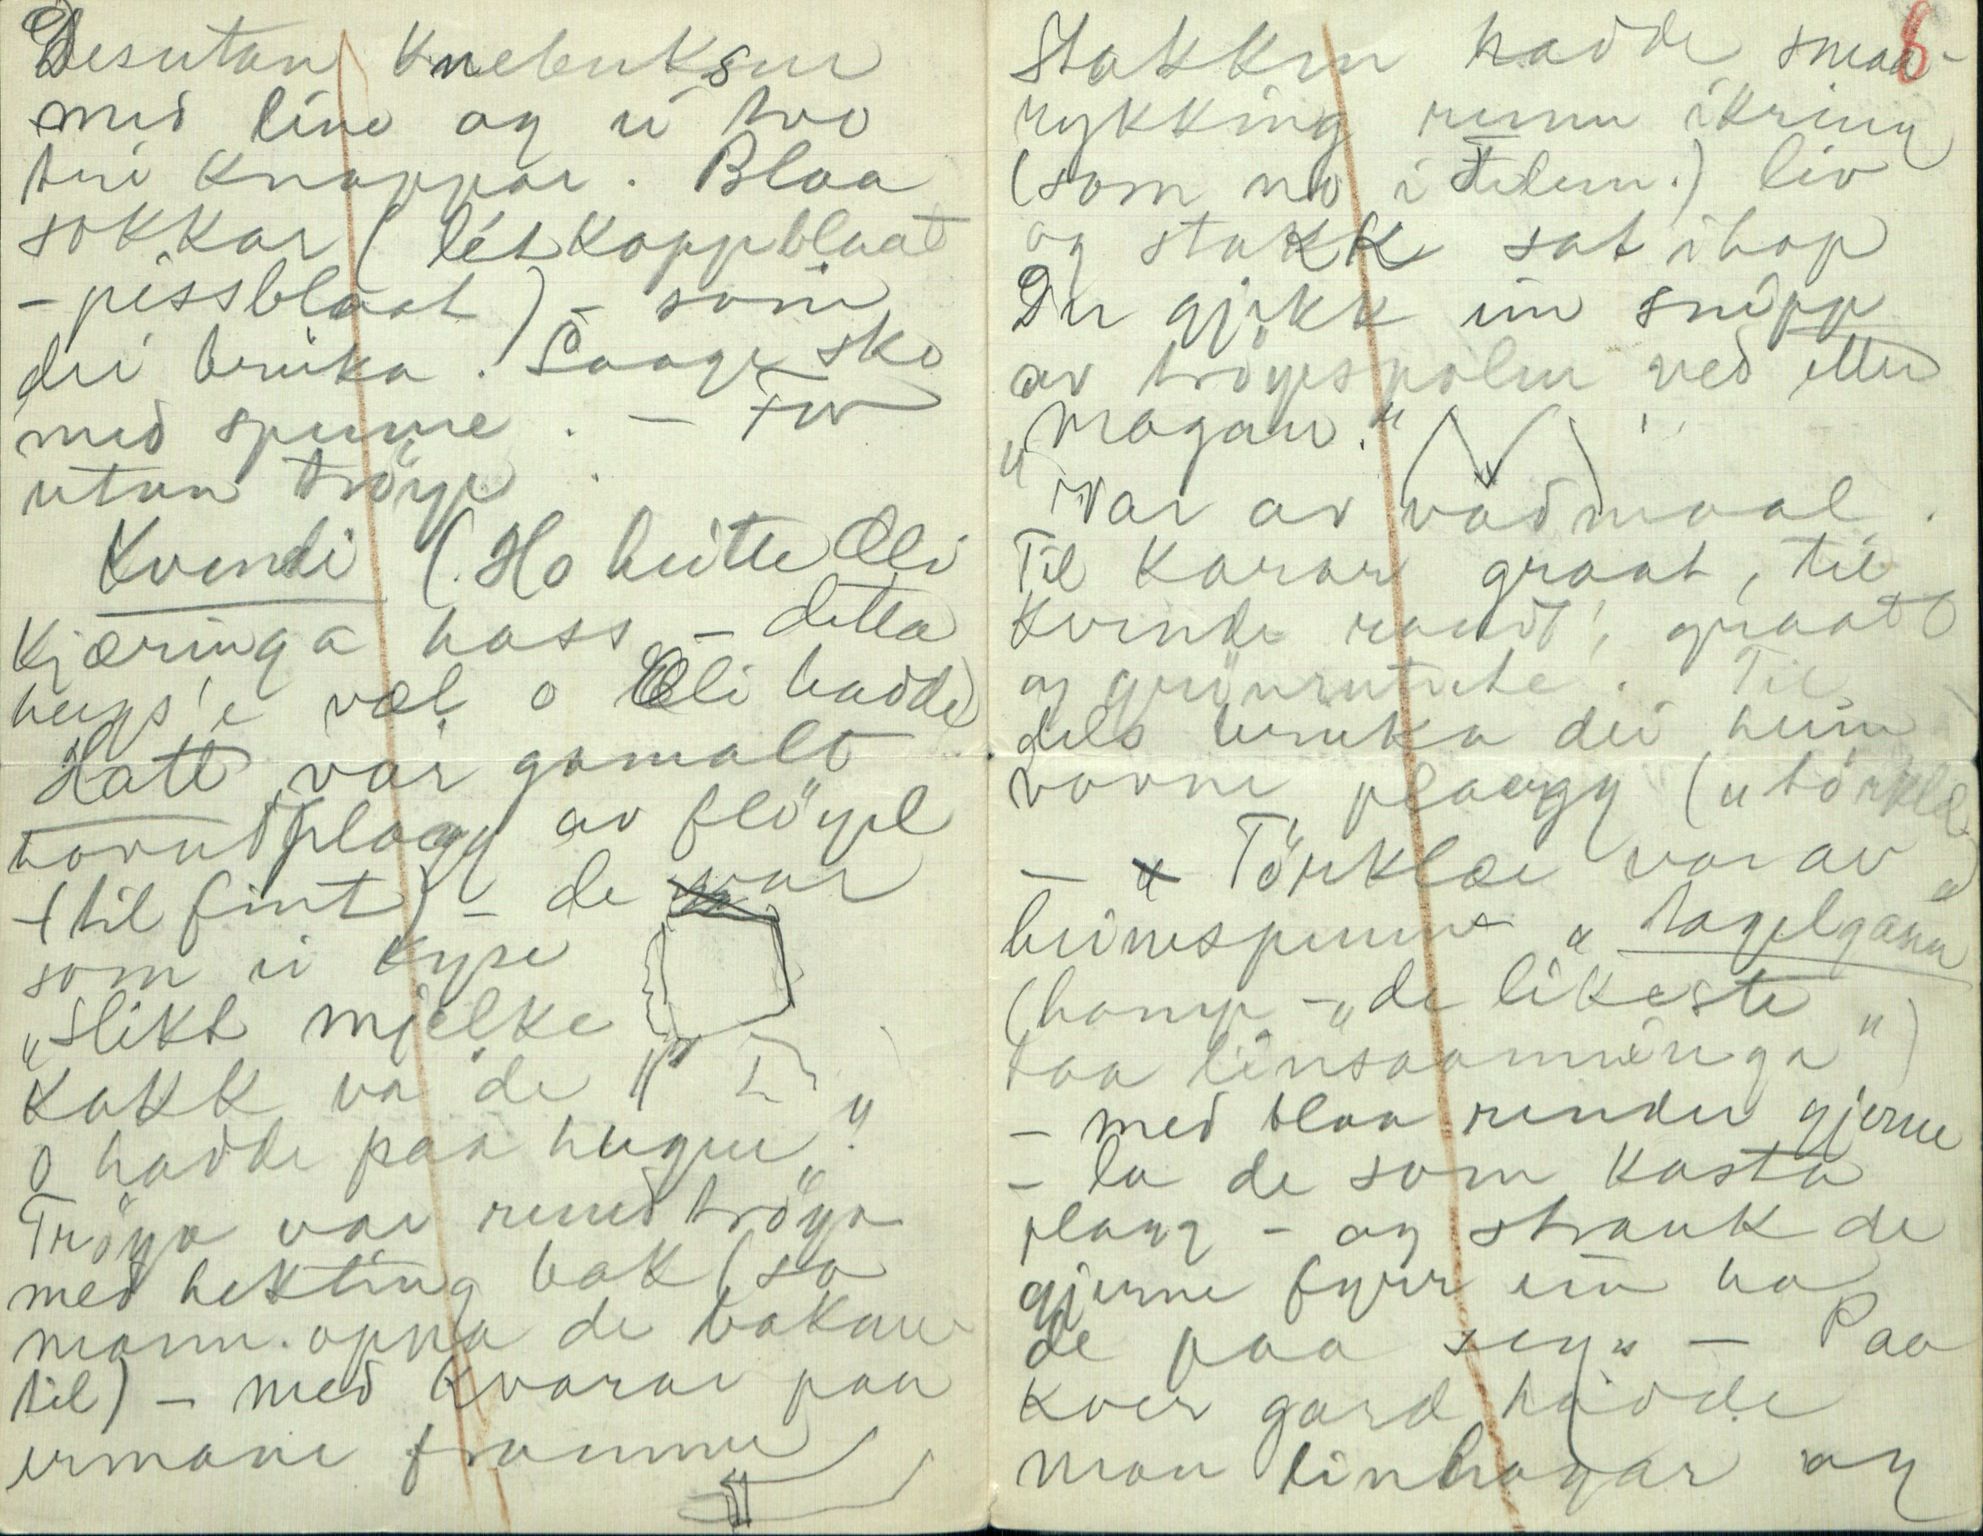 Desutan Knebuksur
med line og ei tvo
tri Knappar. Blaa
sokkar (létkoppblaat
- pissblaat) - som
dei bruka. Laage sko
med spenne. - For
utan tröye
Kvendi (Ho heitte Eli
Kjæringa hass - detta
hugs'e væl o Eli hadde
Hatt var gamalt
hovudplagg av flöyel
(til fint) - de var
som ei kyse
"Slikt mjelke
Kakk va de
o hadde paa hugue".
Tröya var rundtröya
med hekting bak (so
mann opna de bakan
til) - med kvarar paa
ermane framme
6
Stakken hadde smaa-
rykking runn ikring
(som no i Telem.) liv
og stakk sat ihop
Der gjekk ein snipp
av tröyespolen ned etter
"Magan."
Var av vadmaal.
Til Karar graat, til
Kvende raudt, graatt
og grönrutete. Til
dels bruka dei heim
vovne plagg ("törklæ
- Törklæe var av
heimespunne "hagelgarn
(hamp - "de likaste
taa linsaanninga")
- med blaa render gjerne
- la de som kasta
plagg - og strauk de
gjerne fyrr ein ha
de paa seg" - Paa
kver gard hadde
man linhagar og